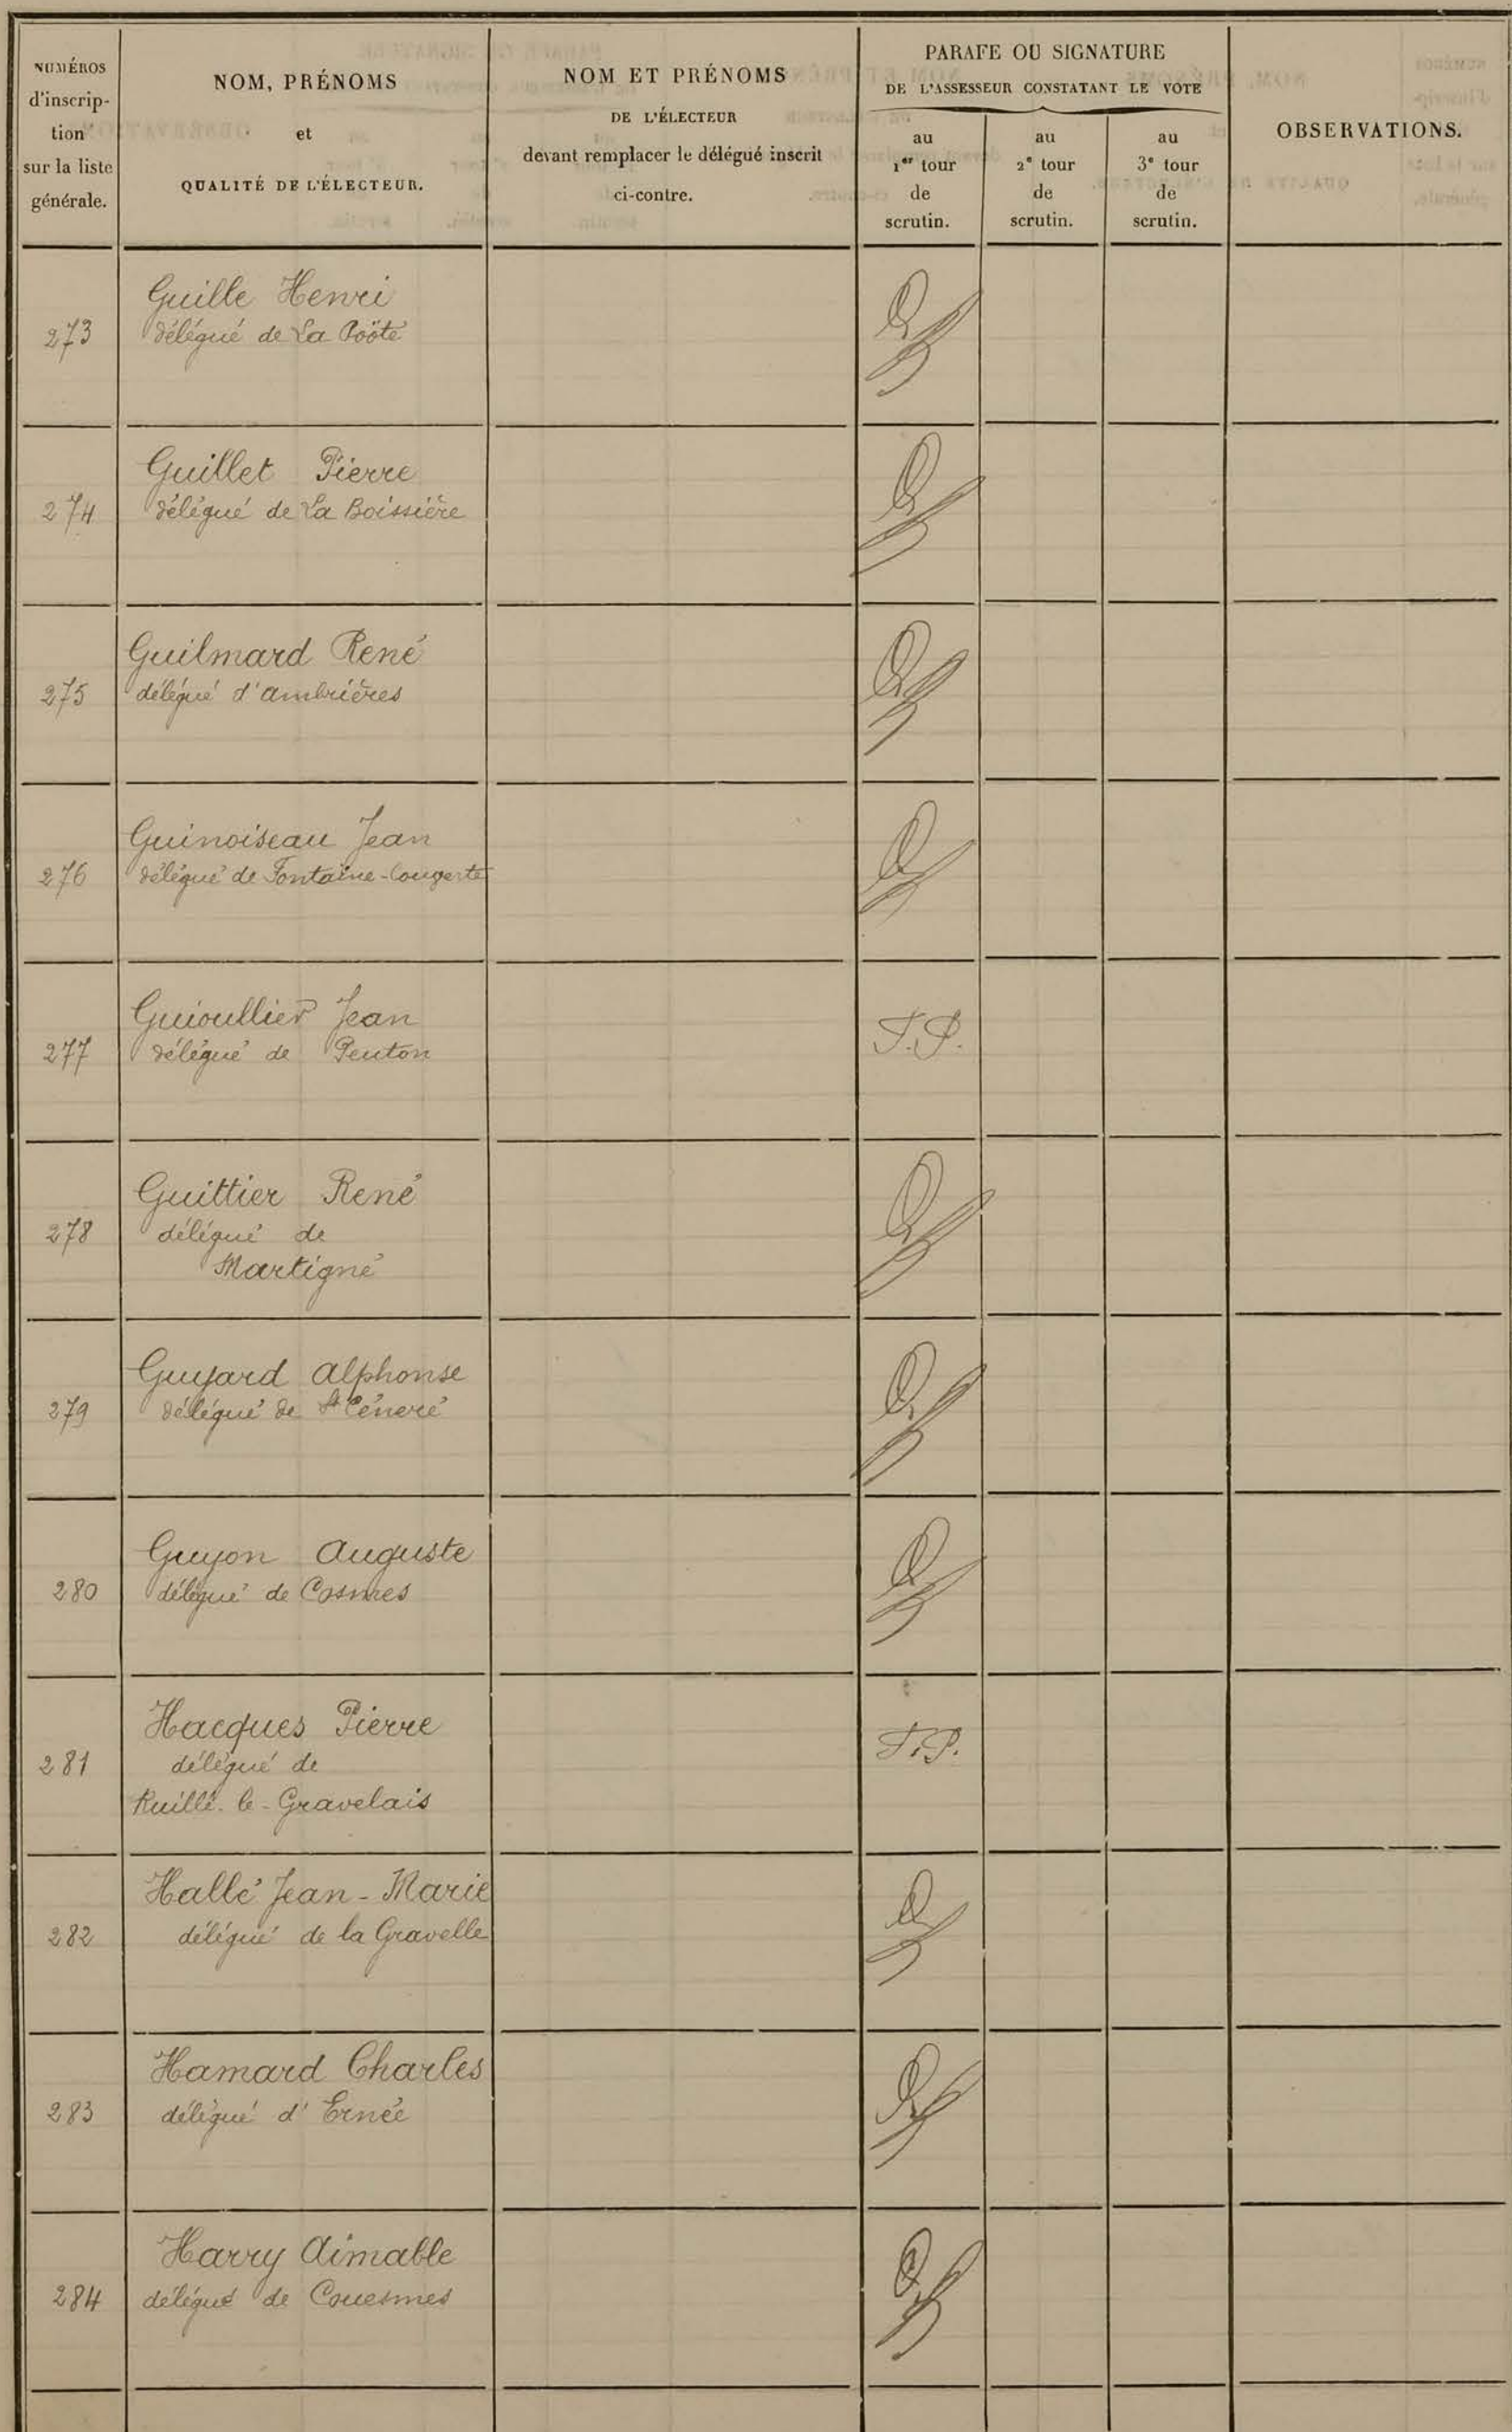 NUMÉROS
d'inscrip-
tion
sur la liste
générale.
NOM, PRÉNOMS
et
QUALITÉ DE L'ÉLECTEUR.
NOM ET PRÉNOMS
DE L'ÉLECTEUR
devant remplacer le délégué inscrit
ci-contre.
PARAFE OU SIGNATURE
DE L'ASSESSEUR CONSTATANT LE VOTE
au
1er tour
de
scrutin.
au
2e tour
de
scrutin.
au
3e tour
de
scrutin.
OBSERVATIONS.
Guille Henri
273 délégué de La Poôté
Guillet Pierre
274 délégué de La Boissière
Guilmard René
275 délégué d'ambrières
Guinoiseau Jean
276 délégué de Fontaine-Couverte
Guioullier Jean
277 délégué de
Guittier René
278 délégué de
Martigné
Guyard Alphonse
279 délégué de St Céneré
Guyon Auguste
280 délégué de Cosmes
Hacques Pierre
281 délégué de
Ruillé-le-Gravelais
Hallé Jean-Marie
282 délégué de la Gravelle
Hamard Charles
283 délégué d'Ernée
Harry Aimable
284 délégué de Couesmes